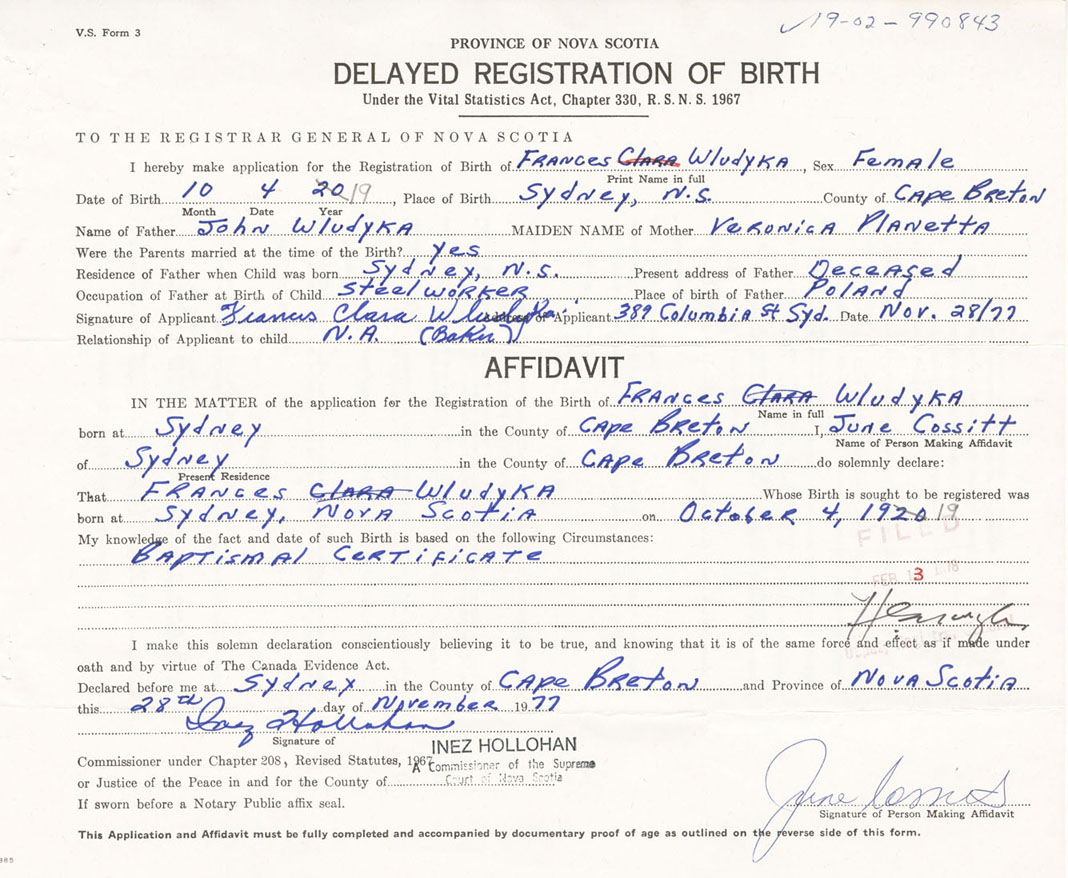 V.S. Form 3
19-02-990843
PROVINCE OF NOVA SCOTIA
DELAYED REGISTRATION OF BIRTH
Under the Vital Statistics Act, Chapter 330, R.S.N.S. 1967
TO THE REGISTRAR GENERAL OF NOVA SCOTIA
I hereby make application for the Registration of Birth of FRANCES CLARA WludyKA, Sex Female
Print Name in full
Date of Birth 10 4 20 19, Place of Birth Sydney, N.S. County of CAPE BRETON
Month Date Year
Name of Father John WludyKA MAIDEN NAME of Mother VERONICA PlANETTA
Were the Parents married at the time of the Birth? yes
Residence of Father when Child was born Sydney, N.S. Present address of Father DECEASED
Occupation of Father at Birth of Child Steel WORKER Place of birth of Father POlAND
Signature of Applicant Frances Clara Wludyka Address of Applicant 389 Columbia St Syd. Date Nov. 28/77
Relationship of Applicant to child N.A. (Baker)
AFFIDAVIT
IN THE MATTER of the application for the Registration of the Birth of FRANCES CLARA WludyKA
Name in full
born at Sydney in the County of CAPE BRETON I, June Cossitt
Name of Person Making Affidavit
of Sydney in the County of CAPE BRETON do solemnly declare:
Present Residence
That FRANCES CLARA WludyKA Whose Birth is sought to be registered was
born at Sydney, NOVA SCOTIA on October 4, 1920 19
My knowledge of the fact and date of such Birth is based on the following Circumstances:
BAPTISMAL CERTIFICATE
FILED
FEB 13
I make this solemn declaration conscientiously believing it to be true, and knowing that it is of the same force and effect as if made under
oath and by virtue of The Canada Evidence Act.
Declared before me at Sydney in the County of CAPE BRETON and Province of NOVA SCOTIA
this 28th day of November 1977
Inez Hollohan
Signature of
INEZ HOLLOHAN
Commissioner under Chapter 208, Revised Statutes, 1967
A Commissioner of the Supreme
or Justice of the Peace in and for the County of
Court of Nova Scotia
If sworn before a Notary Public affix seal.
June Cossitt
Signature of Person Making Affidavit
This Application and Affidavit must be fully completed and accompanied by documentary proof of age as outlined on the reverse side of this form.
885